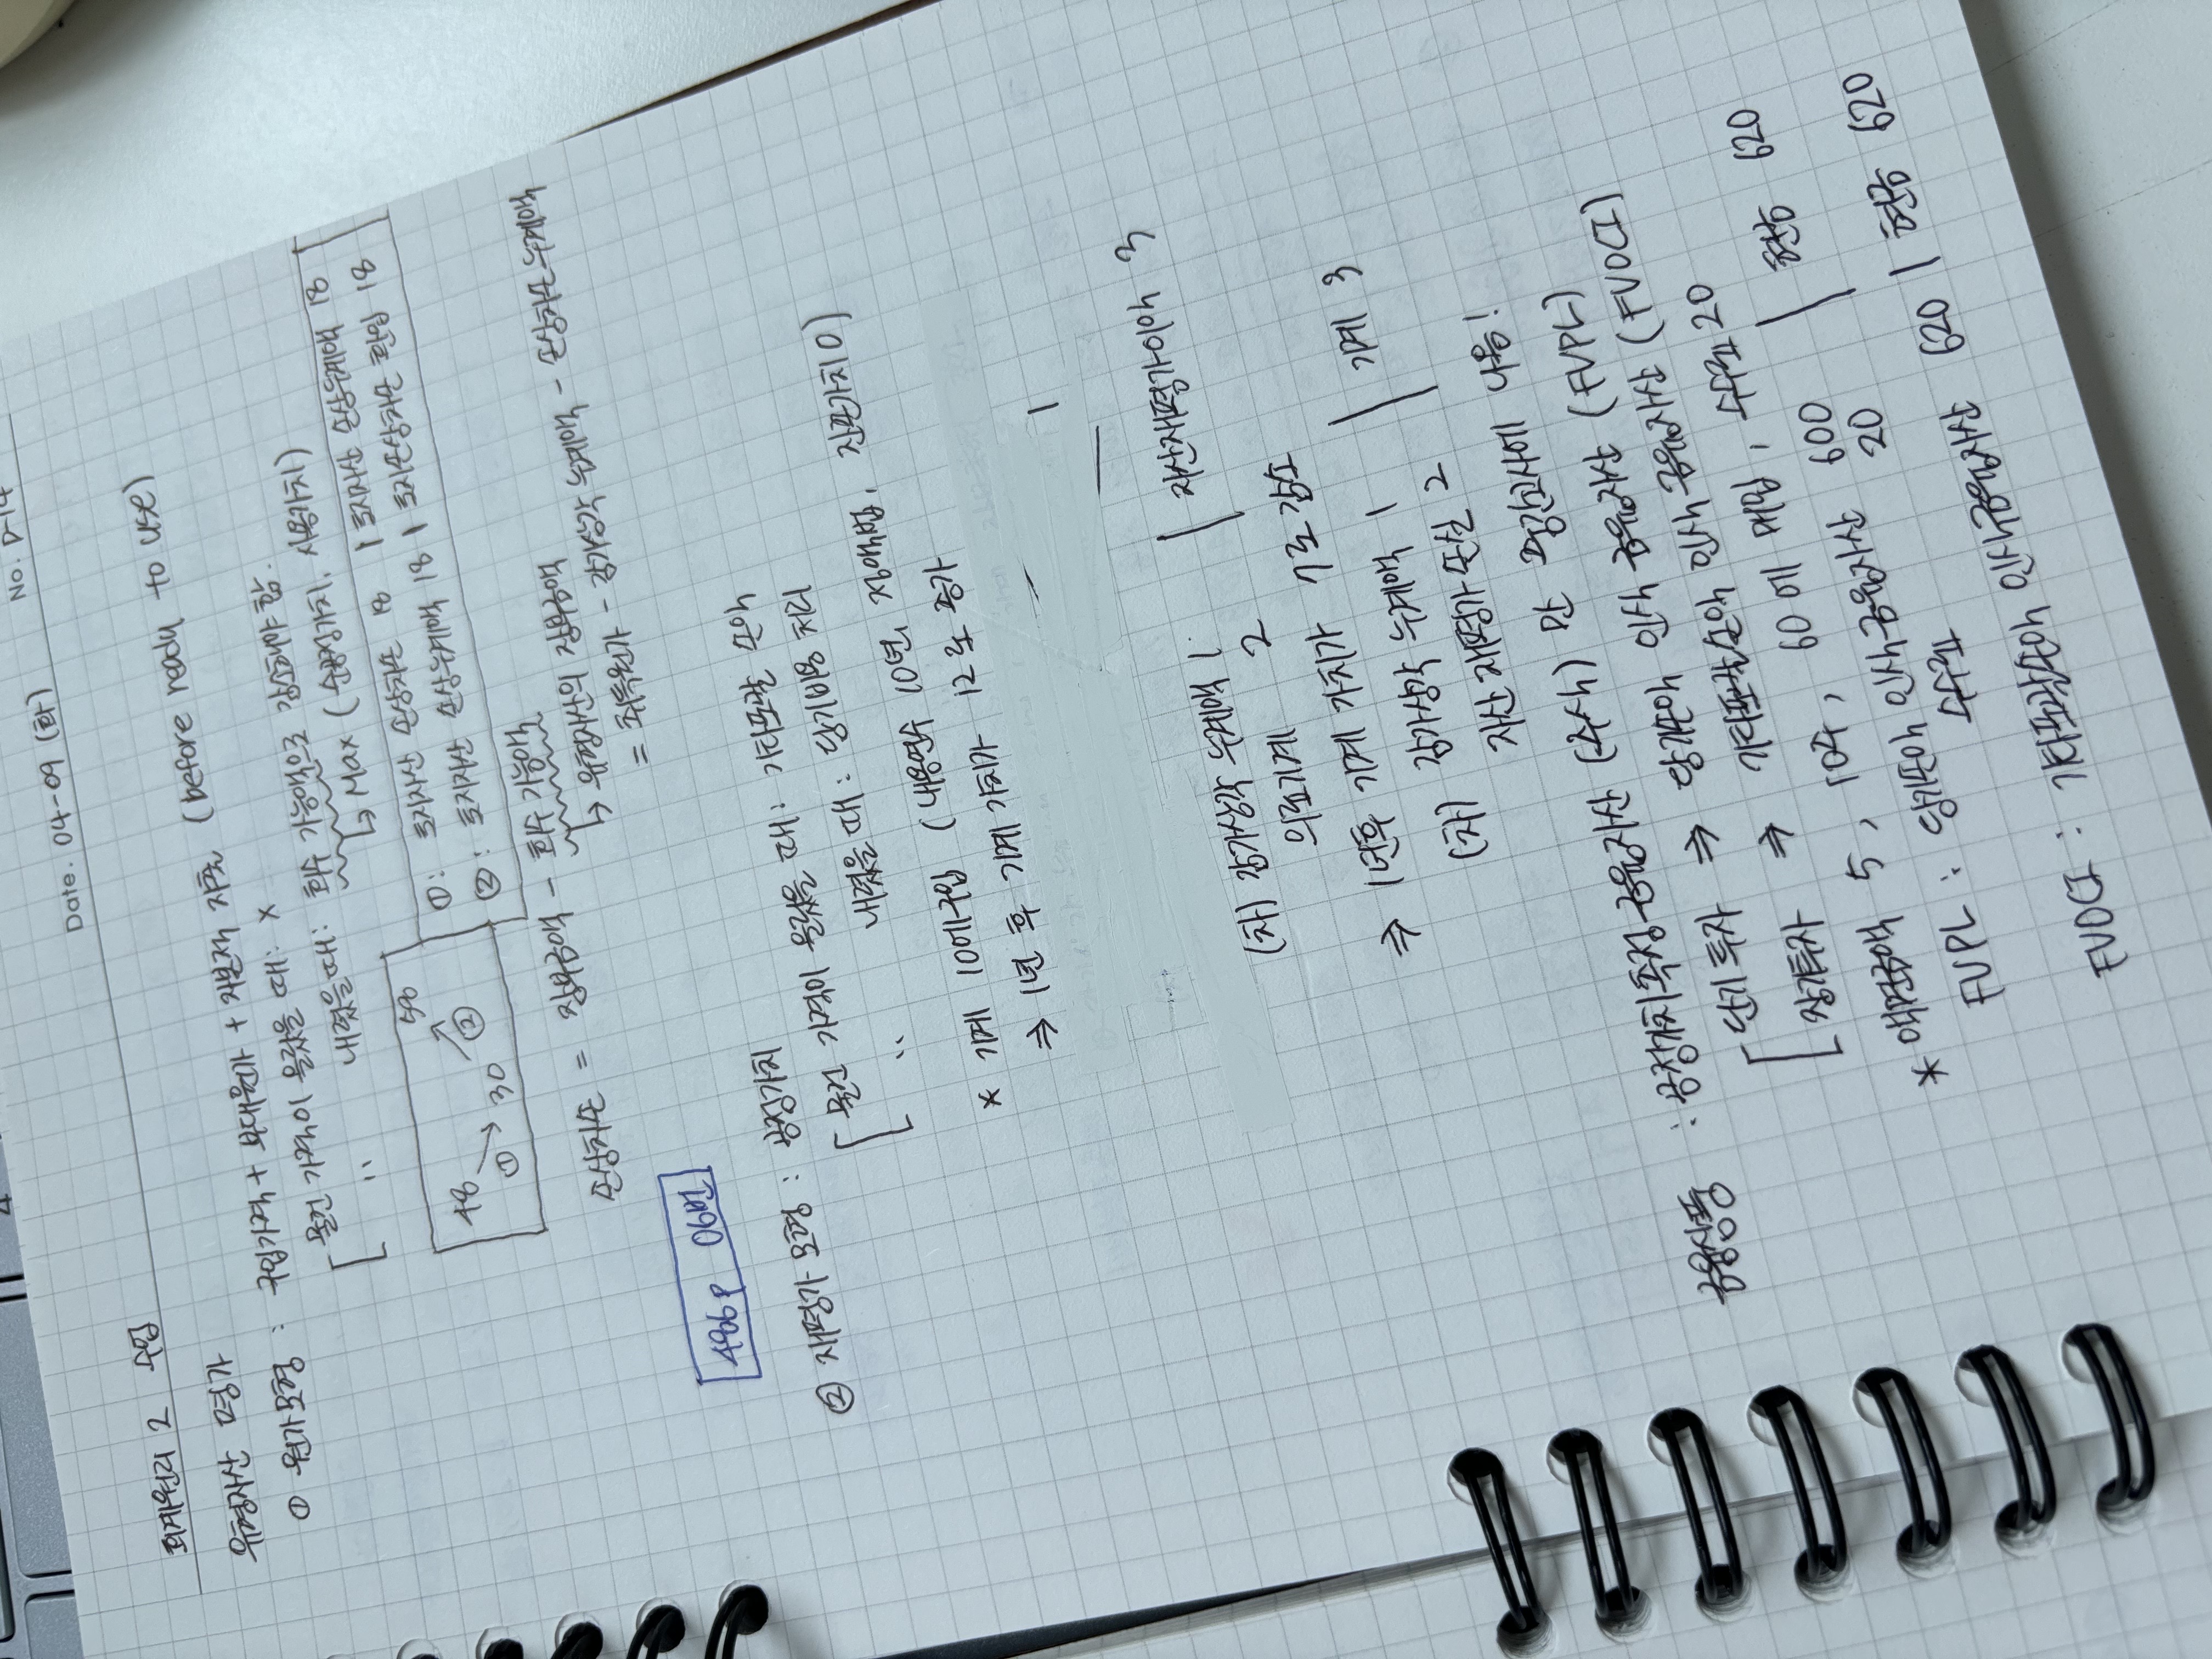 Date. 04-09 (화)
No. D-14
회계원리 2 수업
유형자산 평가
① 원가모형 : 구입가격 + 부대원가 + 자본적 지출 (before ready to use)
물건 가격이 올랐을 때: X
〃 내렸을때: 회수 가능액으로 감소해야 함.
↳ Max (순공정가치, 사용가치)
48 ① → 30 ② ↗ 58
①: 토지자산 손상차손 18 | 토지자산 손상누계액 18
②: 토지자산 손상누계액 18 | 토지손상차손 환입 18
손상차손 = 장부금액 - 회수 가능액
↳ 유형자산의 장부금액
= 취득원가 - 감가상각 누계액 - 손상차손누계액
486p 06번
② 재평가 모형 : 공정가치
물건 가격이 올랐을 때: 기타포괄 손익
〃 내렸을 때 : 당기비용 처리
* 기계 10에 구입 (내용연수 10년, 정액법, 잔존가치 0)
⇒ 1년 후 기계 가치가 12로 증가
(차) 감가상각 누계액 1 | 자산재평가이익 3
의료기계 2
⇒ 1년후 기계 가치가 7로 감소
(차) 감가상각 누계액 1 | 기계 3
자산재평가손실 2
금융상품 : 공정가치측정금융자산 (주식) 만 중간고사에 나옴!
단기투자 ⇒ 당기손익 인식 금융자산 (FVPL)
장기투자 ⇒ 기타포괄손익 인식 금융자산 (FVOCI)
* 액면금액 5, 10주, 60에 매입, 수수료 20
FVPL : 당기손익 인식금융자산 600 | 현금 620
수수료 20
FVOCI : 기타포괄손익 인식금융자산 620 | 현금 620